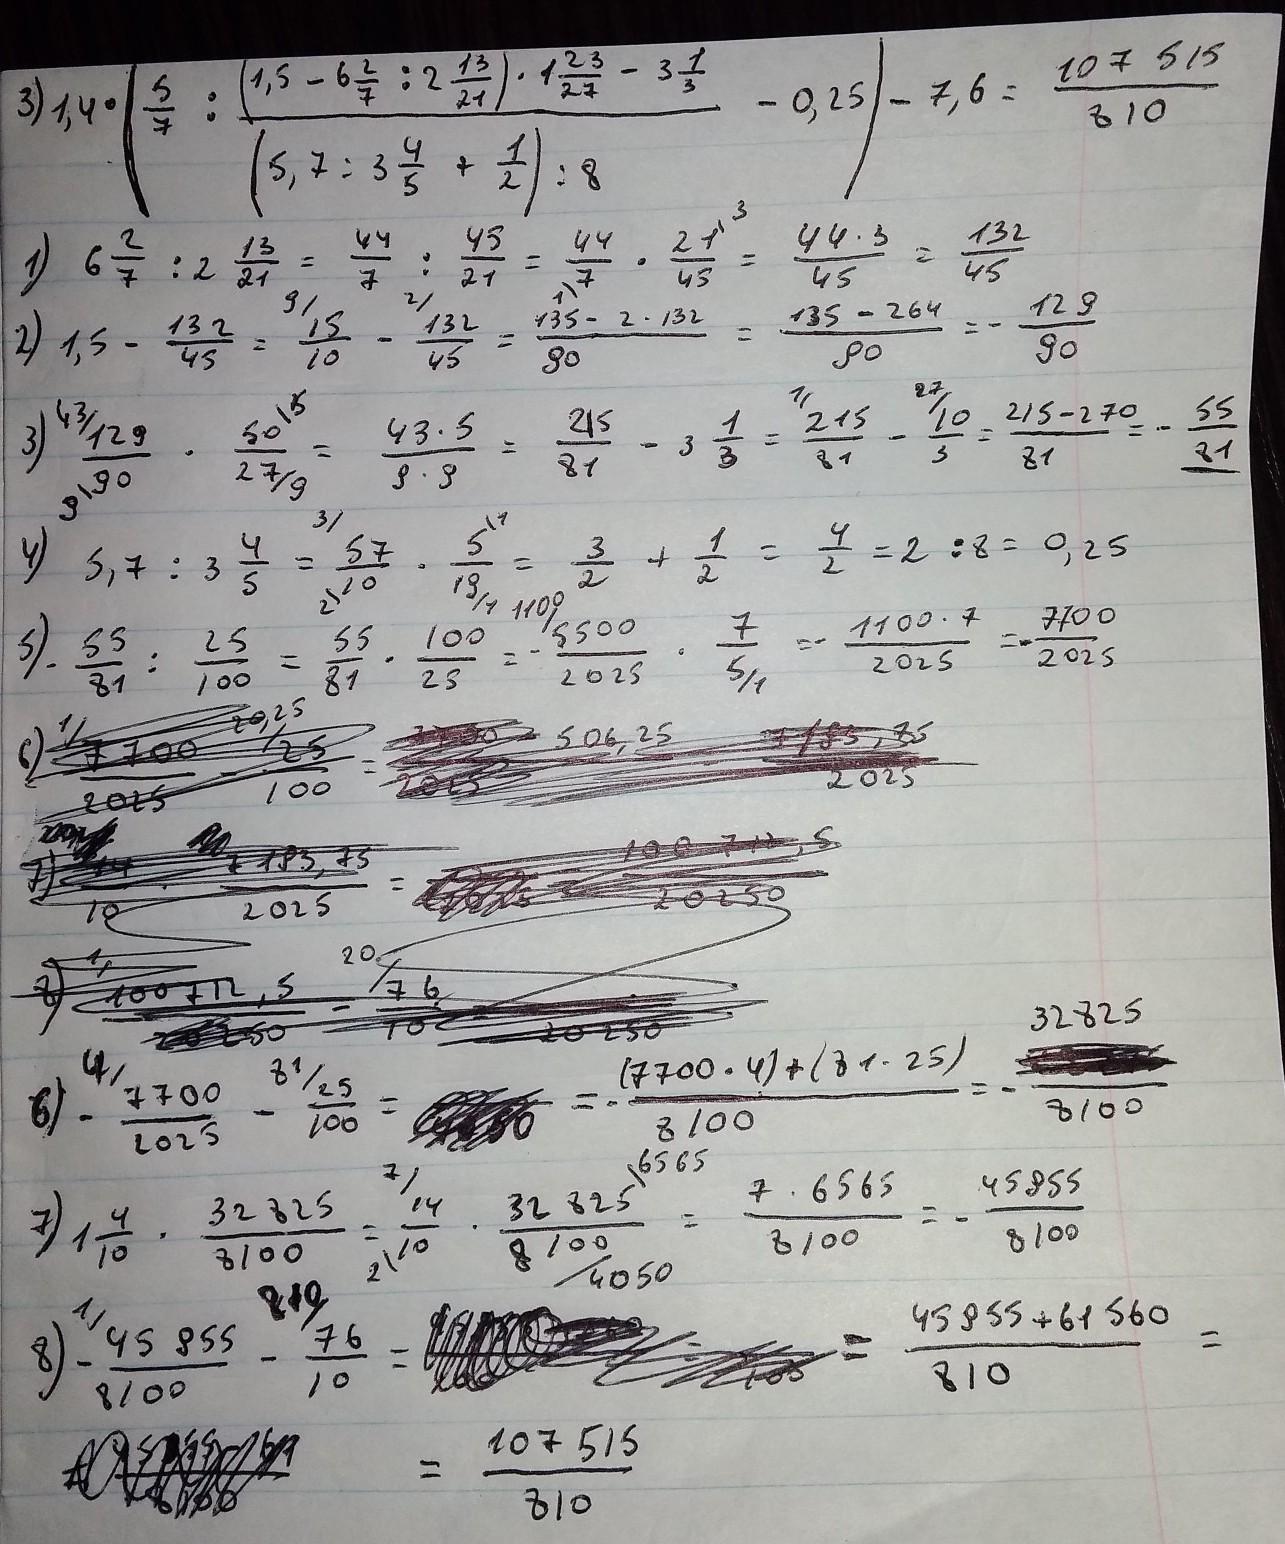 3) 1,4 · ( 5/7 : ((1,5 - 6 2/7 : 2 13/21) · 1 23/27 - 3 1/3) / ((5,7 : 3 4/5 + 1/2) : 8) - 0,25 ) - 7,6 = 107 515/810
1) 6 2/7 : 2 13/21 = 44/7 : 45/21 = 44/7 · 21/45 = 44·3/45 = 132/45
2) 1,5 - 132/45 = 15/10 - 132/45 = 135 - 2·132/90 = 135 - 264/90 = - 129/90
3) 129/90 · 50/27 = 43·5/9·9 = 215/81 - 3 1/3 = 215/81 - 10/3 = 215-270/81 = - 55/81
4) 5,7 : 3 4/5 = 57/10 · 5/19 = 3/2 + 1/2 = 4/2 = 2 : 8 = 0,25
5) - 55/81 : 25/100 = 55/81 · 100/25 = - 5500/2025 · 7/5 = - 1100·7/2025 = - 7700/2025
6) - 7700/2025 - 25/100 = = - (7700·4)+(81·25)/8100 = - 32825/8100
7) 1 4/10 · 32825/8100 = 14/10 · 32825/8100 = 7·6565/8100 = - 45955/8100
8) - 45955/8100 - 76/10 = = 45955+61560/810 =
= 107 515/810